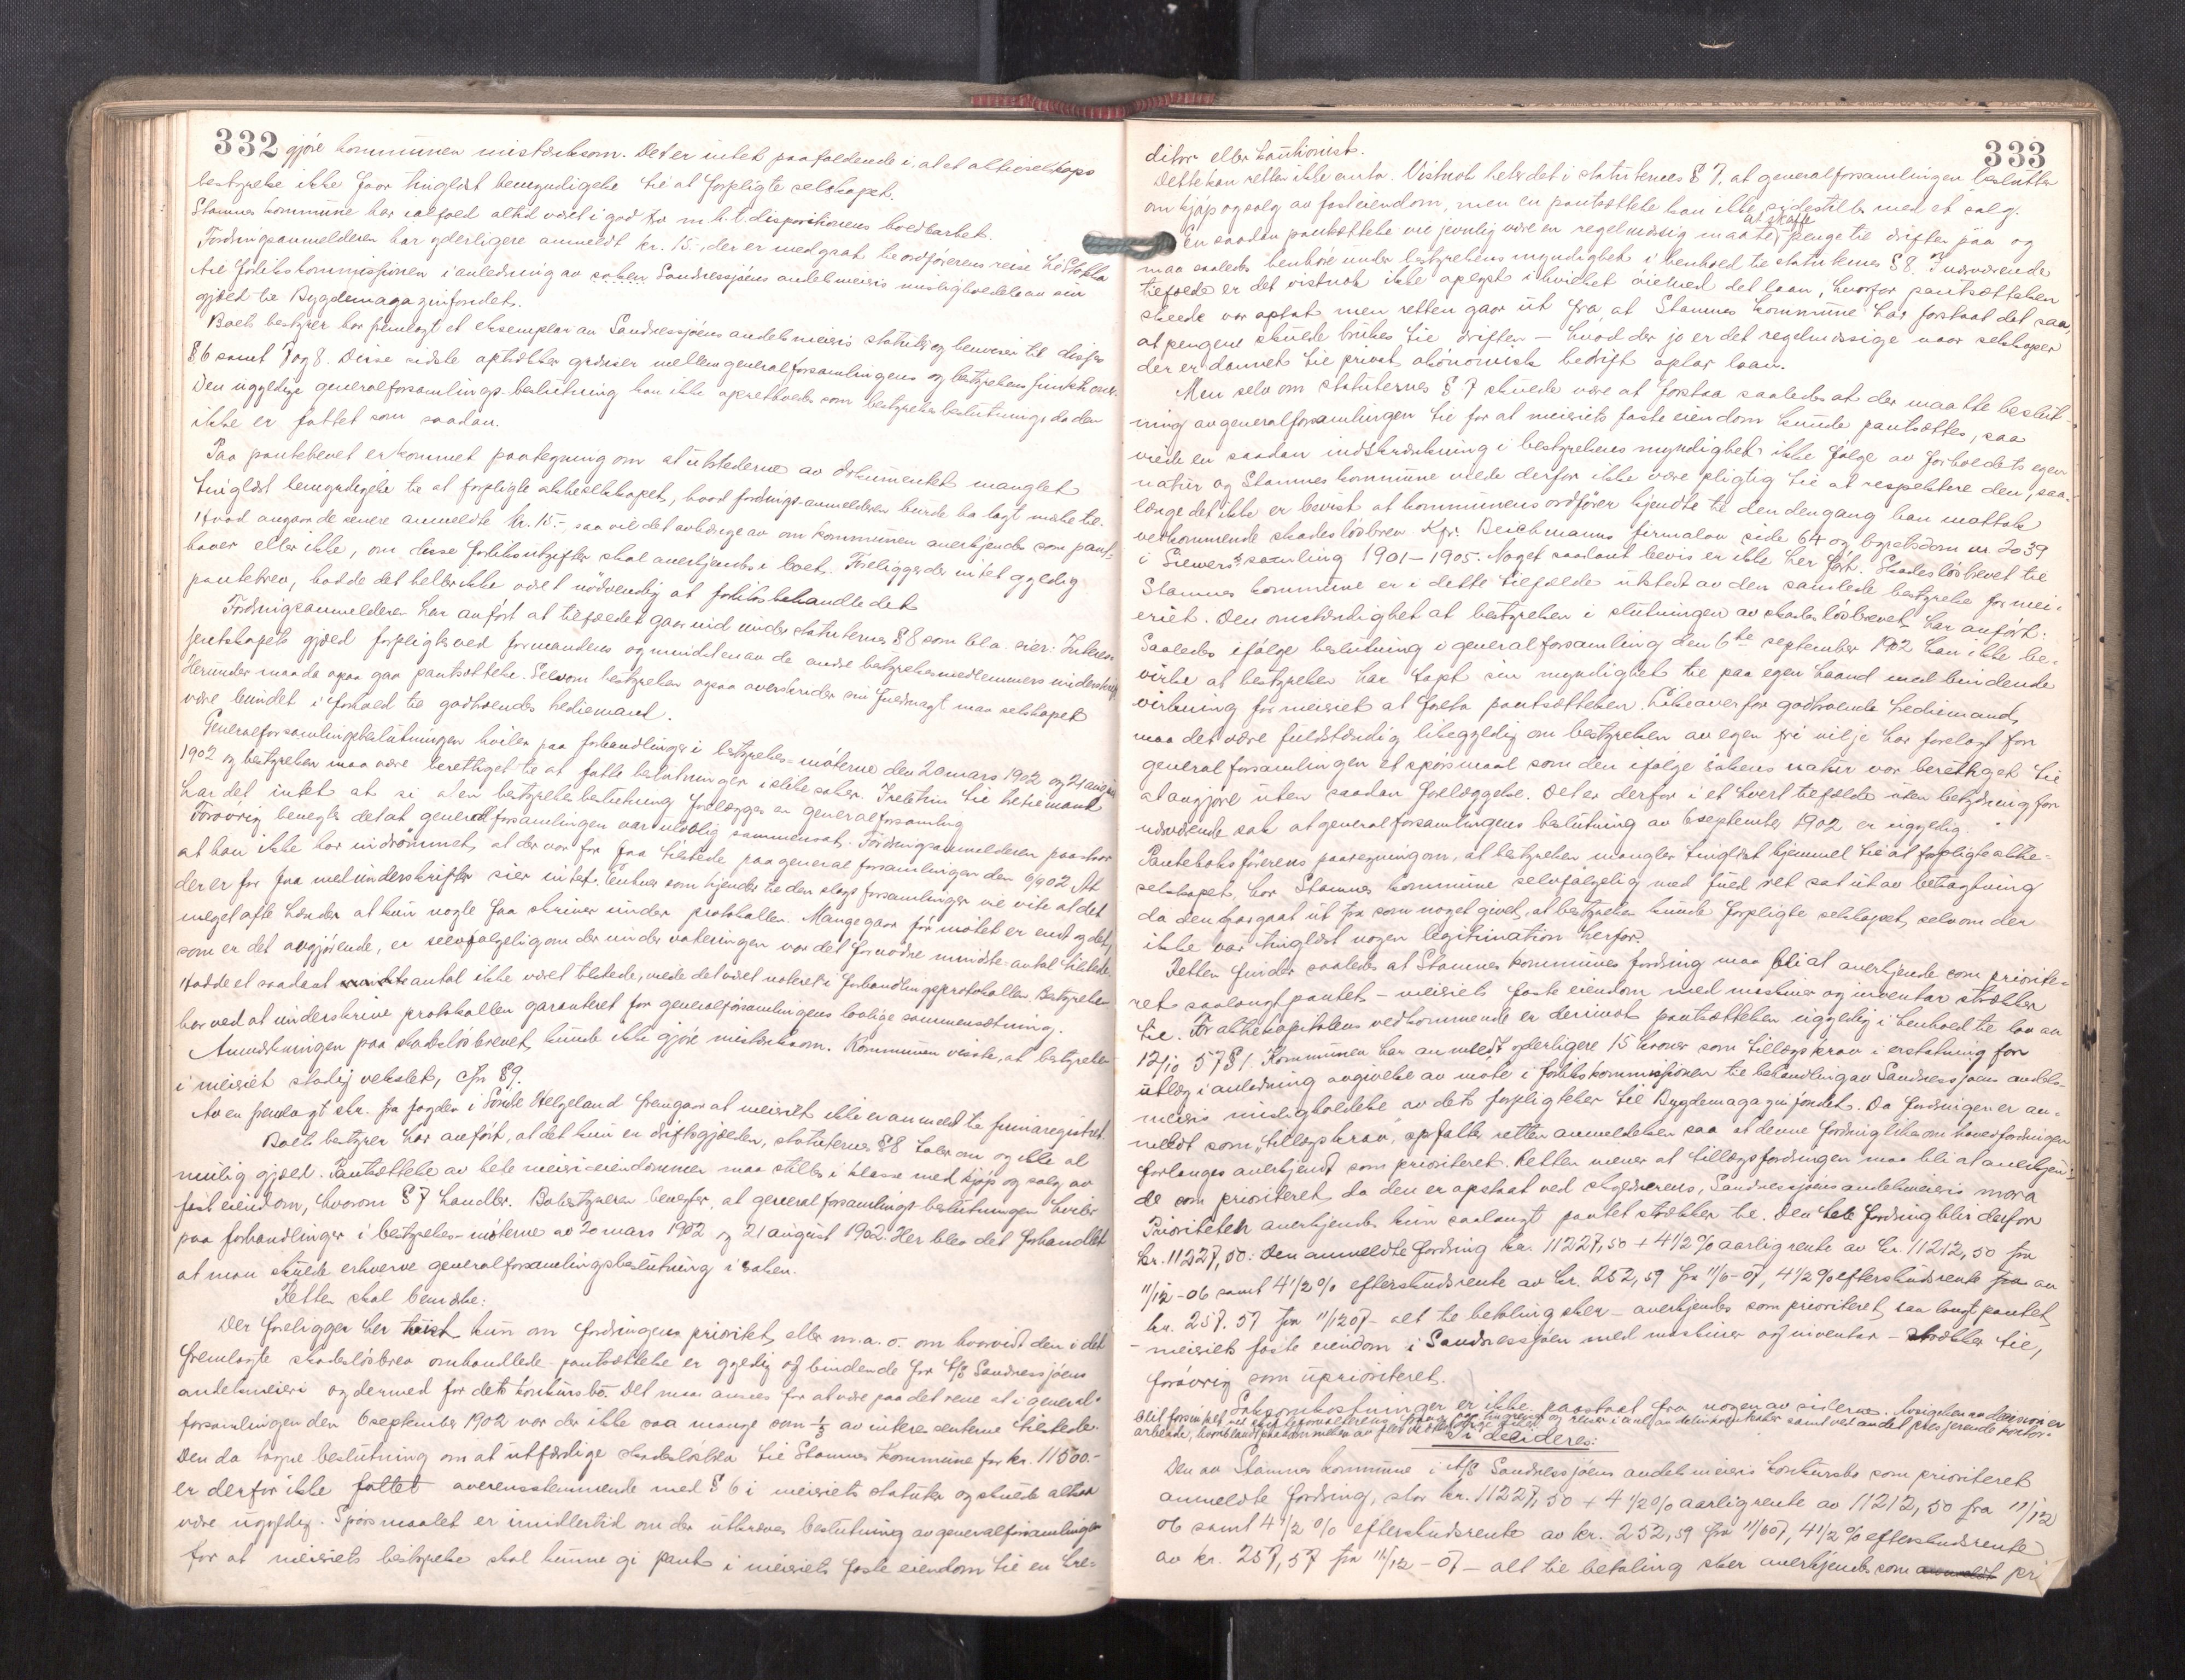 332
gjøre kommunen mistænksom. Det er intet paafaldende i, at et aktieselskaps
bestyrelse ikke faar tinglæst bemyndigelse til at forpligte selskapet.
Stamnes kommune har ialfald altid været i god tro m.h.t. dispositionens holdbarhet.
Fordringsanmelderen har yderligere anmeldt kr. 15.-, der er medgaat til ordførerens reise til
til forlikskommissionen i anledning av saken Sandnessjøens andelsmeieris misligholdelse av sin
gjæld til Bygdemagazinfondet.
Boets bestyrer har fremlagt et eksemplar av Sandnessjøens andelsmeieris statuter og henviser til disses
§ 6 samt 7 og 8. Disse sidste optrækker grænser mellem generalforsamlingens og bestyrelsens funktioner.
Den ugyldige generalforsamlings-beslutning kan ikke opretholdes som bestyrelsesbeslutning, da den
ikke er fattet som saadan.
Paa pantebrevet er kommet paategning om at utstederne av dokumentet manglet
tinglæst bemyndigelse til at forpligte aktieselskapet, hvad fordrings-anmelderen burde ha lagt mærke til.
Hvad angaar de senere anmeldte kr. 15.- saa vil det avhænge av om kommunen anerkjendes som pant-
haver eller ikke, om disse forliksutgifter skal anerkjendes i boet. Foreligger der intet gyldig
pantebrev, hadde det heller ikke været nødvendig at forliksbehandle det
Fordringsanmelderen har anført at tilfældet gaar ind under statuternes § 8 som bl.a. sier: Interes-
sentskapets gjæld forpligtes ved formandens og mindst en av de andre bestyrelsesmedlemmers underskrift
Herunder maa da ogsaa gaa pantsættelse. Selvom bestyrelsen ogsaa overskrider sin fuldmagt maa selskapet
være bundet i forhold til godtroende trediemand.
Generalforsamlingsbeslutningen hviler paa forhandlinger i bestyrelses-møterne den 20 mars 1902 og 21 august
1902 og bestyrelsen maa være berettiget til at fatte beslutninger i slike saker. I retstrin til trediemand
har det intet at si at en bestyrelsesbeslutning forelægges en generalforsamling
Forøvrig benegtes det at generalforsamlingen var ulovlig sammensat. Fordringsanmelderen paastaar
at han ikke har indrømmet, at der var for faa tilstede paa generalforsamlingen den 6/9 02. At
der er for faa med underskrifter sier intet. Enhver som kjender til den slags forsamlinger vil vite at det
meget ofte hænder at kun nogle faa skriver under protokollen. Mange gaar før møtet er endt og det,
som er det avgjørende, er selvfølgelig om der under voteringen var det fornødne mindste-antal tilstede.
Hadde et saadant antal ikke været tilstede, vilde det været noteret i forhandlingsprotokollen. Bestyrelsen
har ved at underskrive protokollen garanteret for generalforsamlingens lovlige sammensætning.
Anmerkningen paa skadesløsbrevet kunde ikke gjøre mistænksom. Kommunen visste, at bestyrelsen
i meieriet stadig vekslet, cfr § 9.
Av en fremlagt skr. fra fogden i Søndre Helgeland fremgaar at meieriet ikke er anmeldt til firmaregistret.
Boets bestyrer har anført, at det kun er driftsgjælden, statuternes § 8 taler om og ikke al
mulig gjæld. Pantsættelse av hele meieriejendommen maa stilles i klasse med kjøp og salg av
fast eiendom, hvorom § 7 handler. Bobestyreren benegter, at generalforsamlings-beslutningen hviler
paa forhandlinger i bestyrelses-møterne av 20 mars 1902 og 21 august 1902. Her blev det forhandlet
at man skulde erhverve generalforsamlingsbeslutning i saken.
Retten skal bemerke:
Der foreligger her tvist kun om fordringens prioritet eller m.a.o. om hvorvidt den i det
fremlagte skadesløsbrev omhandlede pantsættelse er gyldig og bindende for A/S Sandnessjøens
andelsmeieri og dermed for dets konkursbo. Det maa ansees for at være paa det rene at i general-
forsamlingen den 6 september 1902 var der ikke saa mange som 1/3 av interessenterne tilstede.
Den da tagne beslutning om at utfærdige skadesløsbrev til Stamnes kommune for kr. 11500.-
er derfor ikke fattet overensstemmende med § 6 i meieriets statuter og skulde altsaa
være ugyldig. Spørsmaalet er imidlertid om der utkræves beslutning av generalforsamlingen
for at meieriets bestyrelse skal kunne gi pant i meieriets faste eiendom til en kre-
333
ditor eller kautionist.
Dette kan retten ikke anta. Vistnok heter det i statuternes § 7, at generalforsamlingen beslutter
om kjøp og salg av fast eiendom, men en pantsættelse kan ikke sidestilles med et salg.
at skaffe
En saadan pantsættelse vil jevnlig være en regelmæssig maate penge til driften paa og
maa saaledes henhøre under bestyrelsens myndighet i henhold til statuternes § 8. I nærværende
tilfælde er det vistnok ikke oplyst i hvilket øiemed det laan, hvorfor pantsættelsen
skede var optat men retten gaar ut fra, at Stamnes kommune har forstaat det saa,
at pengene skulde brukes til driften – hvad der jo er det regelmæssige naar selskaper
der er dannet til privat økonomisk bedrift optar laan.
Men selv om statuternes § 7 skulde være at forstaa saaledes at der maatte beslut-
ning av generalforsamlingen til for at meieriets faste eiendom kunde pantsættes, saa
vilde en saadan indskrænkning i bestyrelsens myndighet ikke følge av forholdets egen
natur og Stamnes kommune vilde derfor ikke være pligtig til at respektere den, saa-
længe det ikke er bevist at kommunens ordfører kjendte til den dengang han mottok
vedkommende skadesløsbrev. Kfr. Beichmanns firmalov side 64 og byretsdom nr 2039
i Siewers's samling 1901–1905. Noget saadant bevis er ikke her ført. Skadesløsbrevet til
Stamnes kommune er i dette tilfælde utstedt av den samlede bestyrelse for mei-
eriet. Den omstændighet at bestyrelsen i slutningen av skadesløsbrevet har anført:
Saaledes ifølge beslutning i generalforsamling den 6te september 1902 kan ikke be-
virke at bestyrelsen har tapt sin myndighet til paa egen haand med bindende
virkning for meieriet at foreta pantsættelsen. Likeoverfor godtroende trediemand
maa det være fuldstændig likegyldig om bestyrelsen av egen fri vilje har forelagt for
generalforsamlingen et spørsmaal som den ifølge sakens natur var berettiget til
at avgjøre uten saadan forelæggelse. Det er derfor i et hvert tilfælde uten betydning for
nærværende sak at generalforsamlingens beslutning av 6 september 1902 er ugyldig.
Pantebokførerens paategning om, at bestyrelsen mangler tinglæst hjemmel til at forpligte aktie-
selskapet, har Stamnes kommune selvfølgelig med fuld ret sat ut av betragtning
da den har gaat ut fra som noget givet, at bestyrelsen kunde forpligte selskapet, selvom der
ikke var tinglæst nogen legitimation herfor.
Retten finder saaledes at Stamnes kommunes fordring maa bli at anerkjende som priorite-
ret saalangt pantet – meieriets faste eiendom med maskiner og inventar strækker
til. For aktiekapitalens vedkommende er derimot pantsættelsen ugyldig i henhold til lov av
12/10 57 § 1. Kommunen har anmeldt yderligere 15 kroner som tillægskrav i erstatning for
utlæg i anledning avgivelse av møte i forlikskommissionen til behandling av Sandnessjøens andels-
meieris misligholdelse av dets forpligtelser til Bygdemagazinfondet. Da fordringen er an-
meldt som „tillægskrav", opfatter retten anmeldelsen saa at denne fordring likesom hovedfordringen
forlanges anerkjendt som prioriteret. Retten mener at tillægsfordringen maa bli at anerkjen-
de som prioriteret da den er opstaat ved skyldnerens, Sandnessjøens andelsmeieris mora
Prioriteten anerkjendes kun saalangt pantet strækker til. Den hele fordring blir derfor
kr. 11227,50: Den anmeldte fordring kr. 11227,50 + 4 1/2 % aarlig rente av kr. 11212,50 fra
11/12-06 samt 4 1/2 % efterskudsrente av kr. 252,59 fra 11/6-07, 4 1/2 % efterskudsrente fra av
kr. 257.57 fra 11/12 07 – alt til betaling sker – anerkjendes som prioriteret, saa langt pantet
– meieriets faste eiendom i Sandnessjøen med maskiner og inventar – strækker til,
forøvrig som uprioriteret.
Saksomkostninger er ikke paastaat fra nogen av siderne. Avsigelsen av dommen er
blit forsinket ved
arbeide,
Ti decideres:
Den av Stamnes kommune i A/S Sandnessjøens andelsmeieris konkursbo som prioriteret
anmeldte fordring, stor kr. 11227,50 + 4 1/2 % aarlig rente av 11212,50 fra 11/12
06 samt 4 1/2 % efterskudsrente av kr. 252,59 fra 11/6 07, 4 1/2 % efterskudsrente
av kr. 257,57 fra 11/12-07 – alt til betaling sker anerkjendes som anmeldt pri